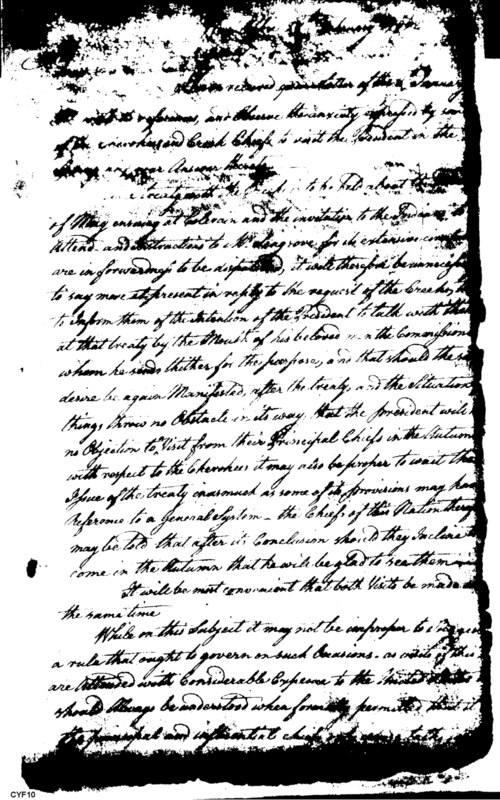 February
received your letter of the
the with its references, and observe the anxiety expressed by some
of the Cherokee and Creek Chiefs to visit the President in the
Answer thereto
to be held about the
of May ensuing at Colerain and the invitation to the Indians to
Attend and instructions to Mr Seagrove for its extensive
are in forwardness to be dispatched, it will therefore be unnecessary
to say more at present in reply to the request of the Creeks, than
to Inform them of the intention of the President to talk with them
at that treaty by the Mouth of his beloved men the Commissioners
whom he sends thither for the purpose, and that should the
desire be again Manifested, after the treaty, and the Situation
things, throw no Obstacle in its way, that the president will
no Objection to a Visit from their Principal Chiefs in the Autumn
with respect to the Cherokees it may also be proper to wait the
Issue of the treaty inasmuch as some of its provisions may have
Reference to a General System – the Chiefs of this Nation
may be told that after its Conclusion should they Incline to
come in the Autumn that he will be glad to see them
It will be most convenient that both Visits be made
the same time
While on this Subject it may not be improper to
a rule that ought to govern on such Occasions. as visits of this
are Attended with Considerable Expence to the United States
should Always be understood when formally permitted that it
the principal and influential chiefs
CYF10